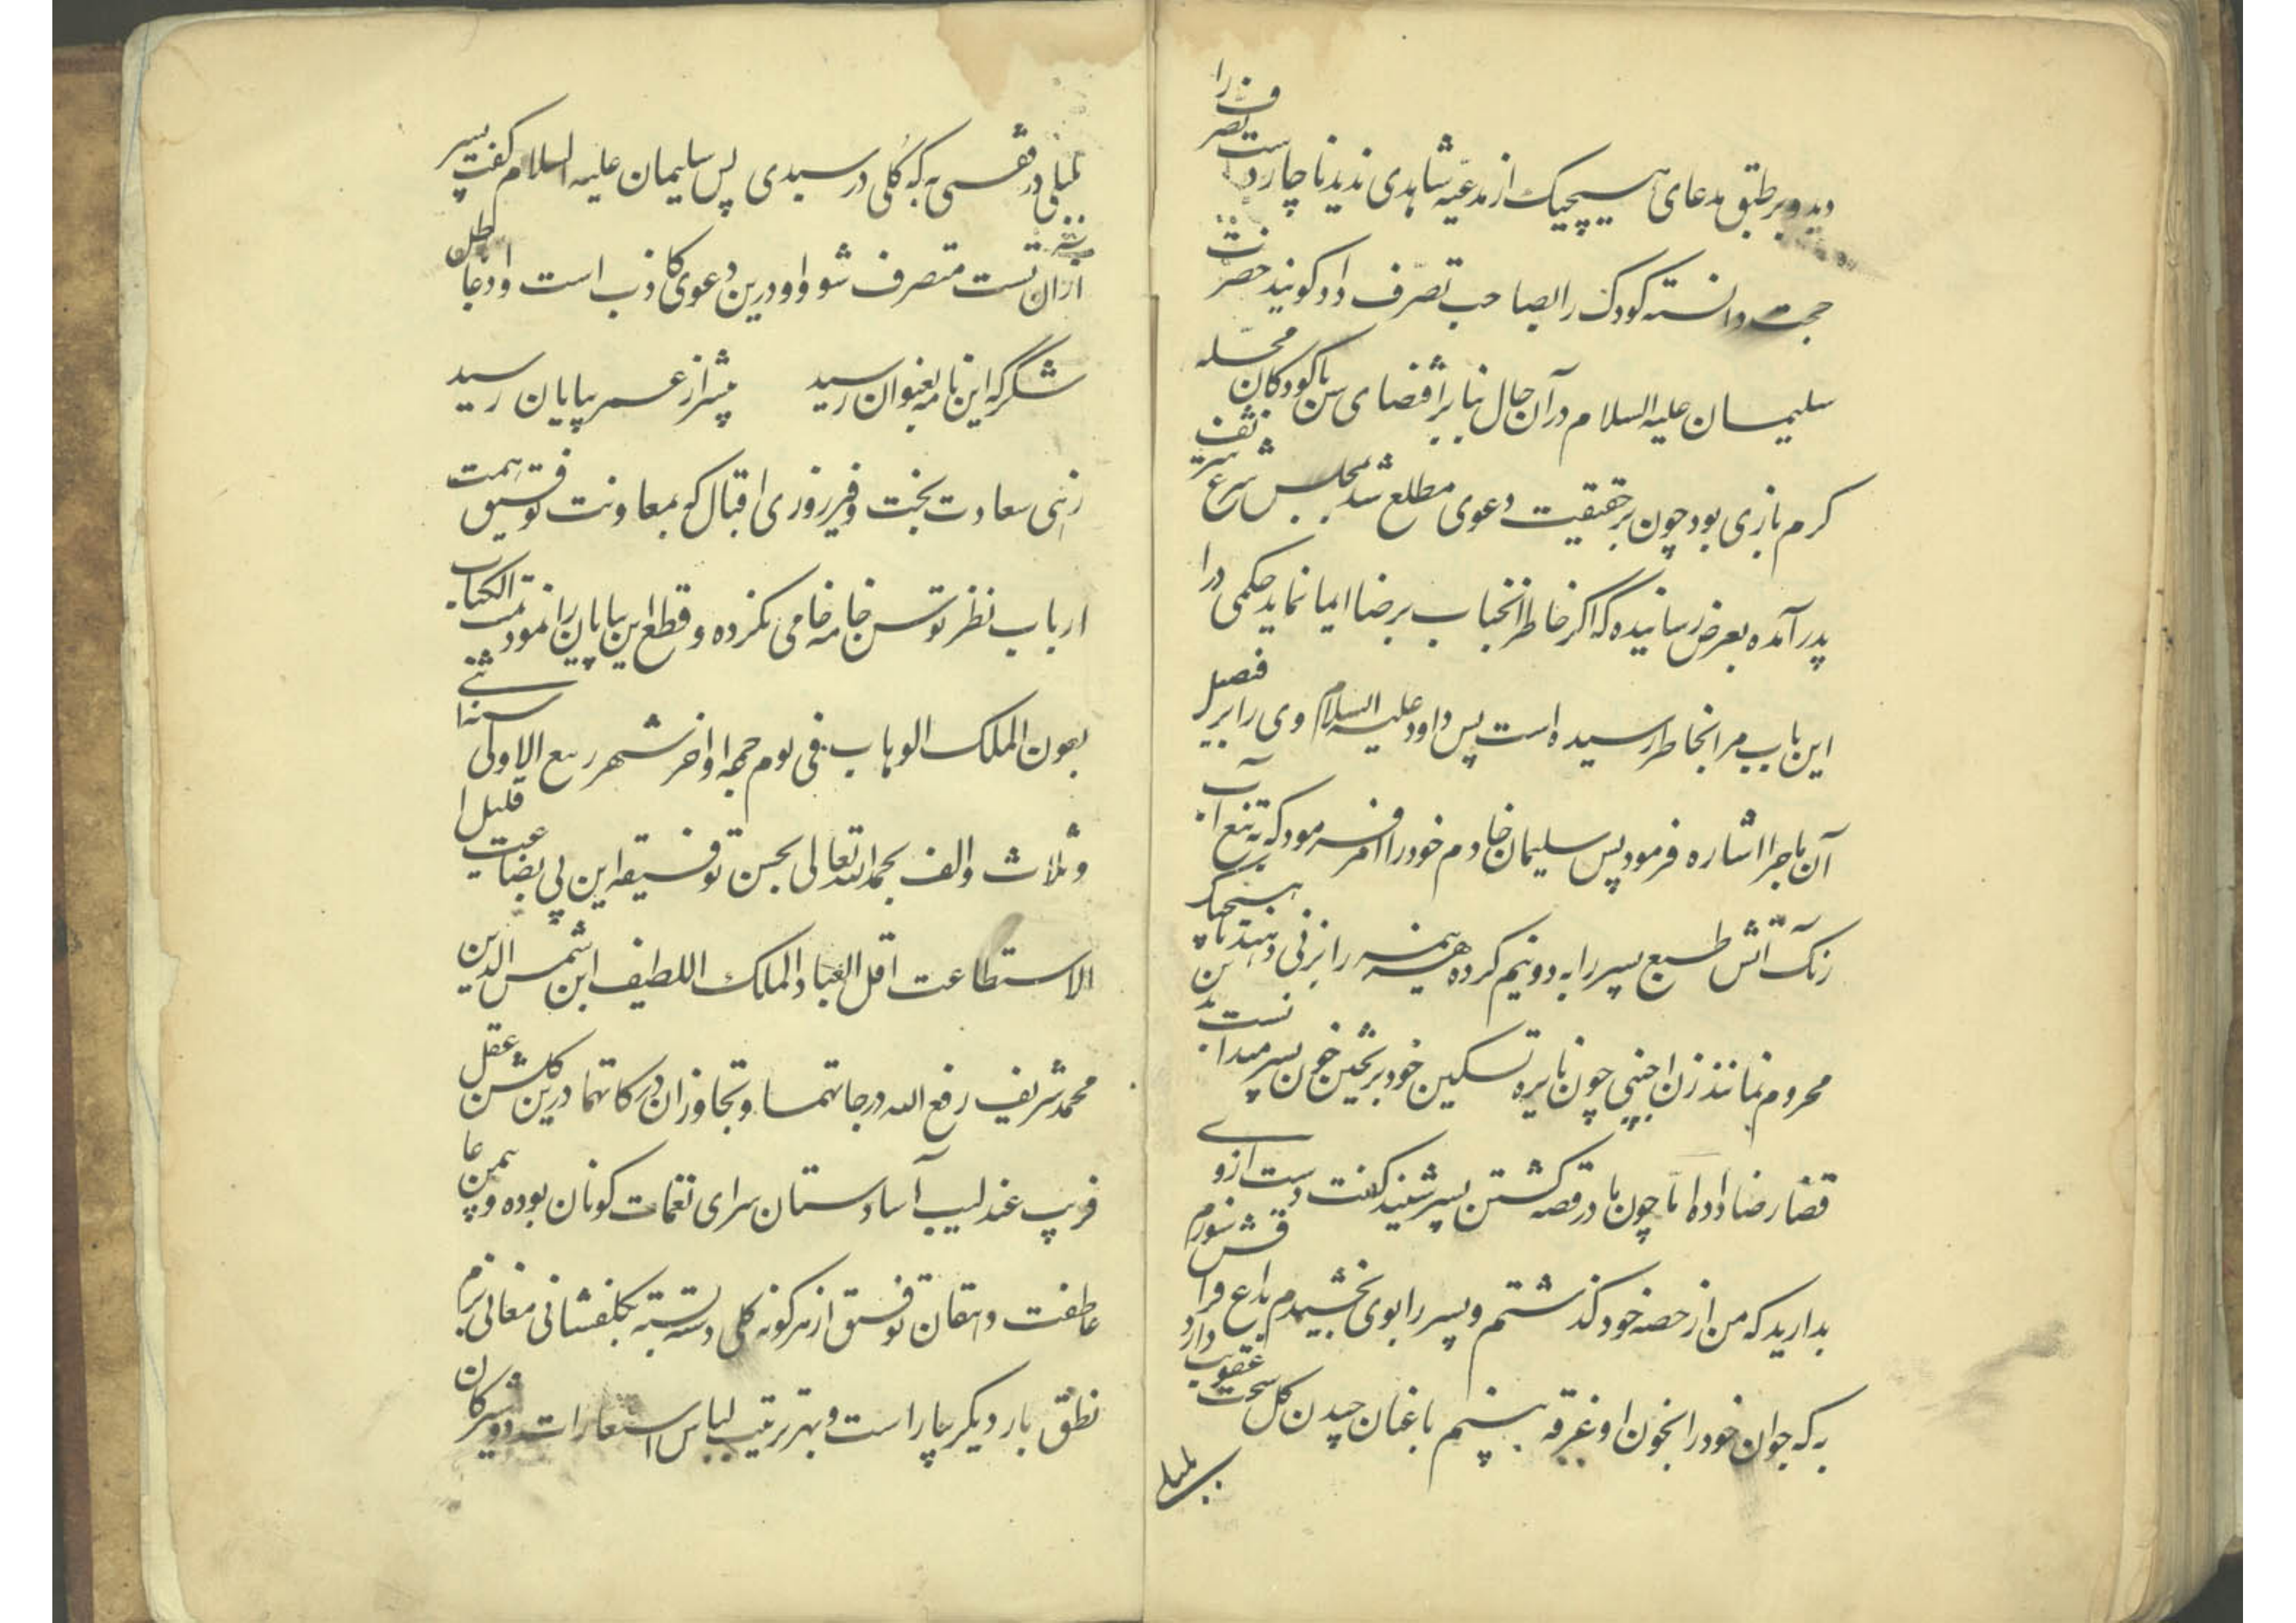 دید و بر طبق مدعای هیچیک از مدعیه شاهدی ندید ناچار دست تصرف را
حجت دانسته کودک را بصاحب تصرف داد کویند حضرت
سلیمان علیه السلام در آن حال بنا بر اقتضای سن با کودکان محله
کرم بازی بود چون بر حقیقت دعوی مطلع شد بمجلس شرع شریف
پدر آمده بعرض رسانیده که اکر خاطر انجناب بر ضا ایما نماید حکمی درا
این باب مرا بخاطر رسیده است پس داود علیه السلام وی را بر فیصل
آن ماجرا اشاره فرمود پس سلیمان خادم خود را امر فرمود که به تیغ آب
رنک آتش طبع پسر را به دو نیم کرده هر نیمه را بزنی دهند تا هیچیک
محروم نمانند زن اجنبی چون نایره تسکین خود بر یختن خون پسر میدانست بدین
قضا رضا داده اما چون مادر قصه کشتن پسر شنید کفت دست از وی
بدارید که من از حصه خود کذشتم و پسر را بوی بخشیدم بداغ فراقش سوزم
به که جوان خود را بخون او غرقه بینم باغبان چیدن کل سخت عقوبت دارد
بلبلی
بلبلی در قفسی به که کلی در سبدی پس سلیمان علیه السلام کفت پسر
از آن تست متصرف شو و او درین دعوی کاذب است و ادعا باطل
شکر که این نامه بعنوان رسید پیشتر از عمر بپایان رسید
زهی سعادت بخت و فیروزی اقبال که بمعاونت توفیق همت
ارباب نظر توسن خامه خامی نکرده و قطع این بیابان را نمود تمت الکتاب
بعون الملک الوهاب فی یوم جمعه اواخر شهر ربیع الاولی سنه اثنی
و ثلاث والف بحمد الله تعالی بحسن توفیقه این بی بضاعت قلیل ا
الاستطاعت اقل العباد الملک اللطیف ابن شمس الدین
محمد شریف رفع الله درجاتهما و تجاوز ان درکاتهما درین کلشن عقل
فریب عندلیب آسا دستان سرای نغمات کوناکون بوده و چمن عا
عاطفت دهقان توفیق از هر کونه کلی دسته بسته بکلفشانی معانی بزم
نطق بار دیکر بیاراست و بهتر ترتیب لباس استعارات دوشیزکان